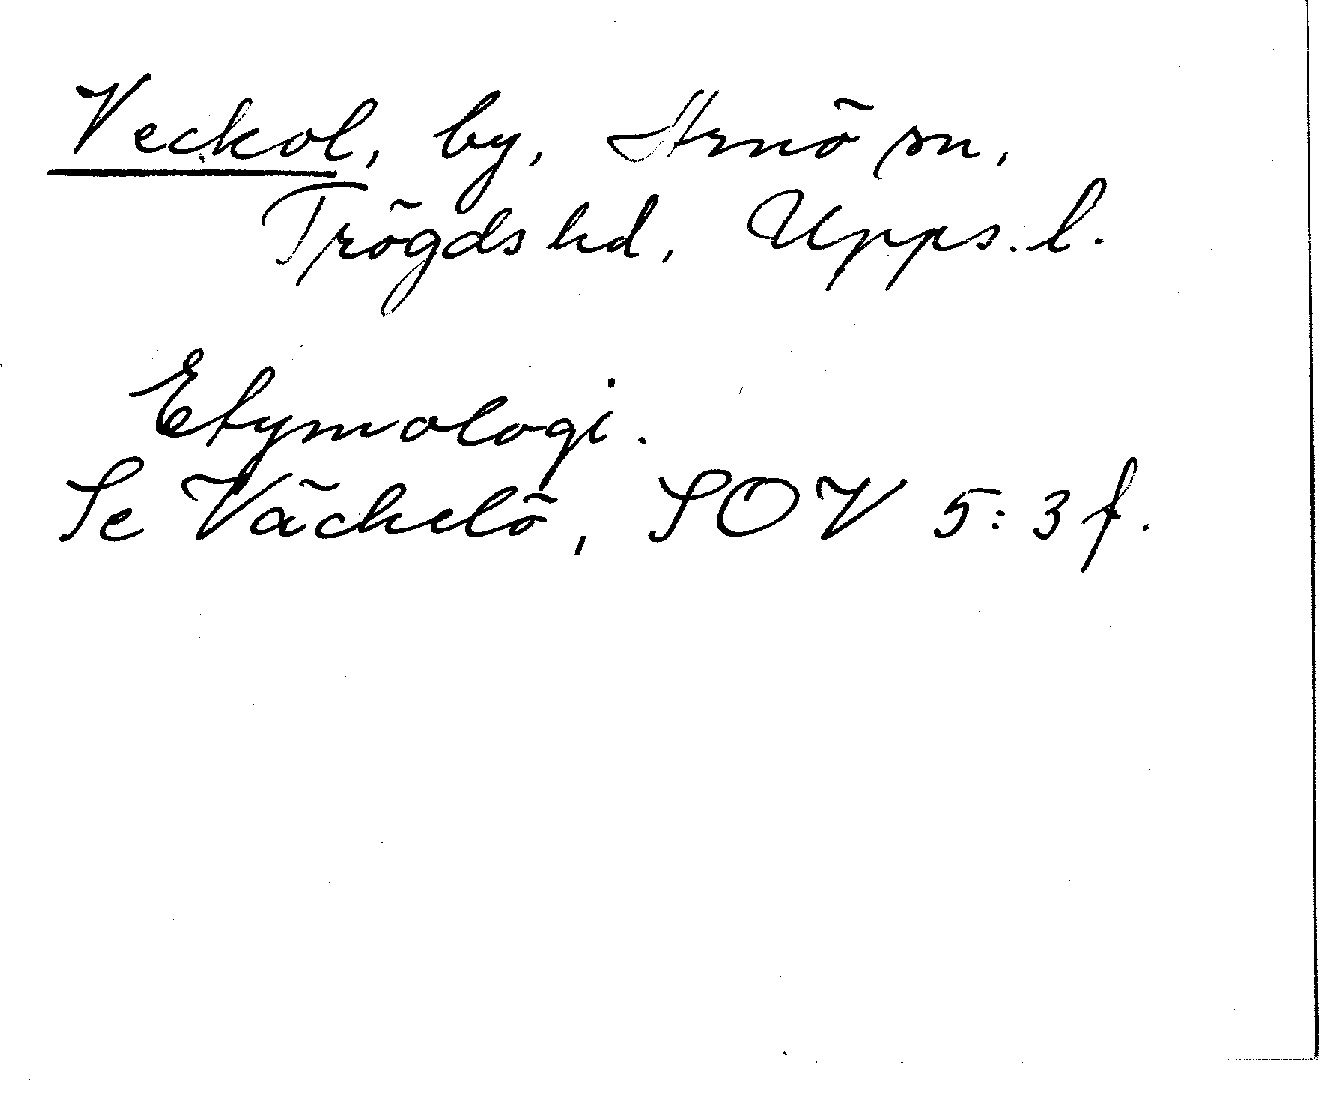 Veckol, by, Arnö sn,
Trögds hd, Upps. l.
Etymologi.
Se Väckelö, SOV 5:3 f.